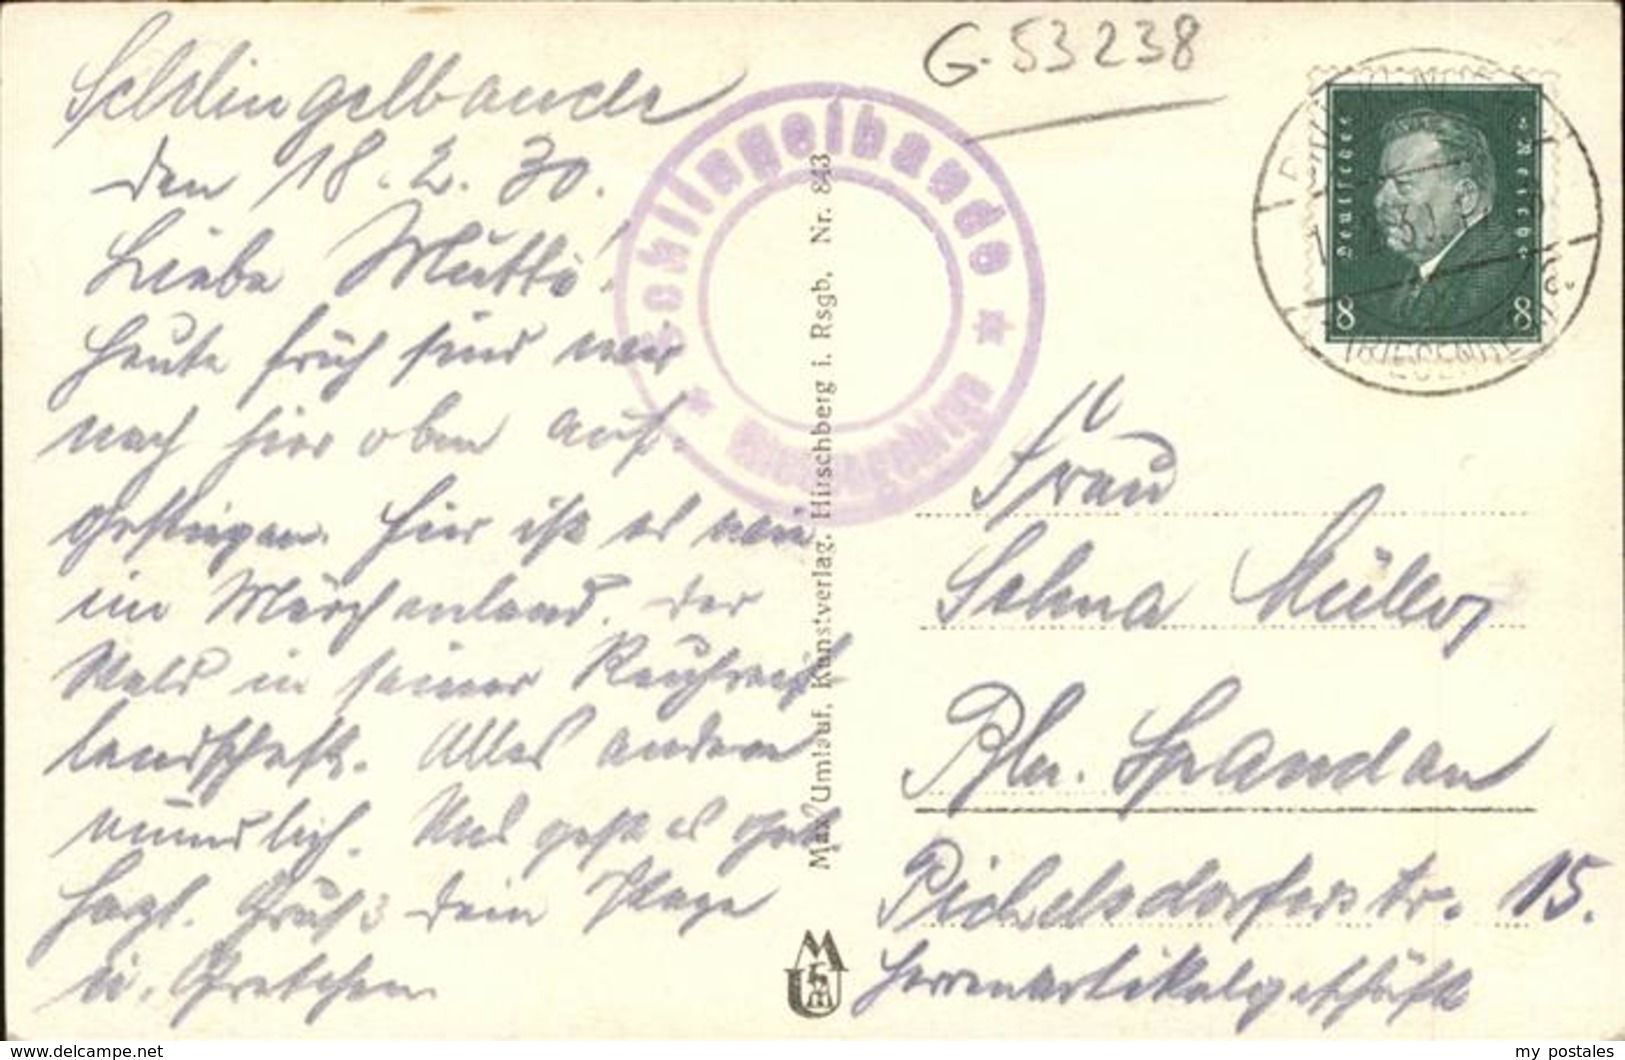 G. 53238
Schlingelbaude
den 18. 2. 30.
Liebe Mutti!
Heute früh sind wir
nach hier oben auf-
gestiegen. Hier ist es wie
im Märchenland. Der
Wald in seiner Rauhreif-
landschaft. Alles andere
mündlich. Uns geht es gut
Herzl. Gruß Dein
u. Gretchen
Schlingelbaude
* Riesengebirge *
Max Umlauf, Kunstverlag, Hirschberg i. Rsgb. Nr. 843
MU
Deutsches Reich
8 8
Frau
Selma Müller
Bln. Spandau
Pichelsdorferstr. 15.
Herrenartikelgeschäft
www.delcampe.net
my postales